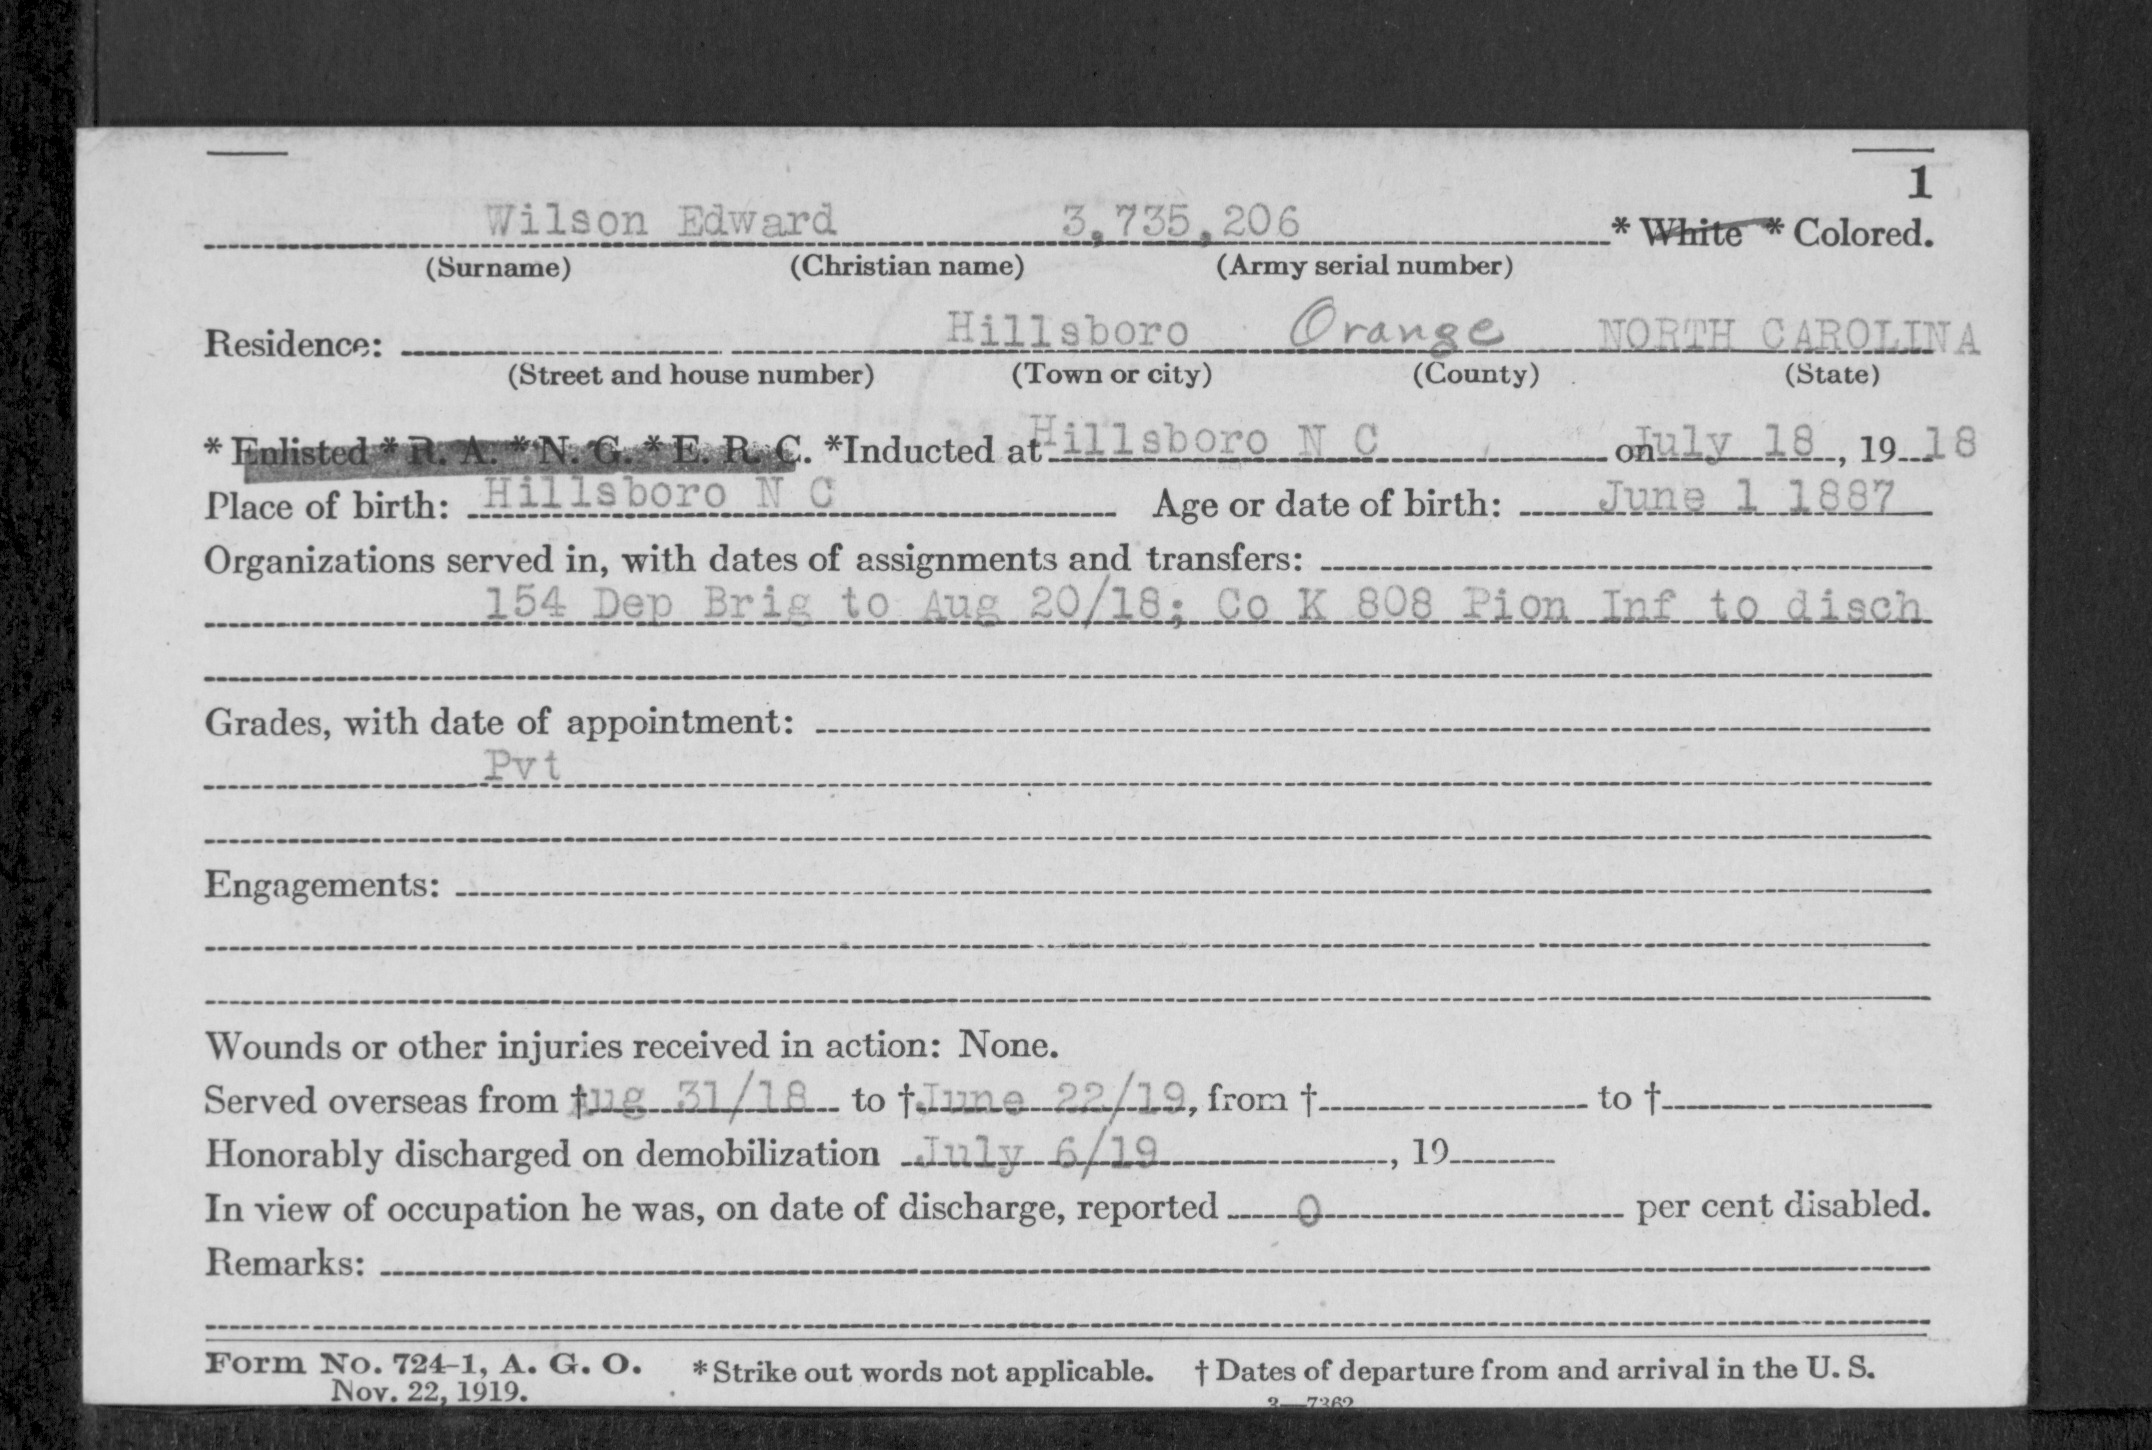 1
Wilson Edward 3,735,206 * White * Colored.
(Surname) (Christian name) (Army serial number)
Hillsboro Orange NORTH CAROLINA
Residence:
(Street and house number) (Town or city) (County) (State)
* Enlisted * R. A. * N. G. * E. R. C. *Inducted at Hillsboro N C on July 18, 19 18
Place of birth: Hillsboro N C Age or date of birth: June 1 1887
Organizations served in, with dates of assignments and transfers:
154 Dep Brig to Aug 20/18; Co K 808 Pion Inf to disch
Grades, with date of appointment:
Pvt
Engagements:
Wounds or other injuries received in action: None.
Served overseas from † Aug 31/18 to † June 22/19, from † to †
Honorably discharged on demobilization July 6/19, 19
In view of occupation he was, on date of discharge, reported 0 per cent disabled.
Remarks:
Form No. 724-1, A. G. O. * Strike out words not applicable. † Dates of departure from and arrival in the U. S.
Nov. 22, 1919.
3—7362